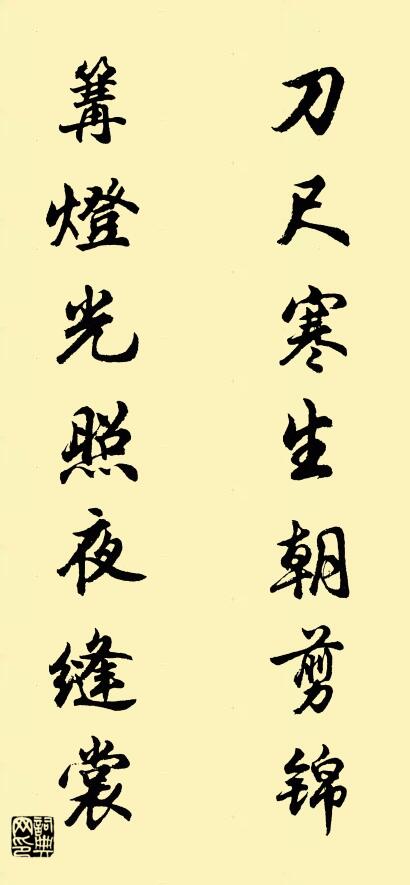 刀尺寒生朝剪锦
篝燈光照夜縫裳
詞典网印